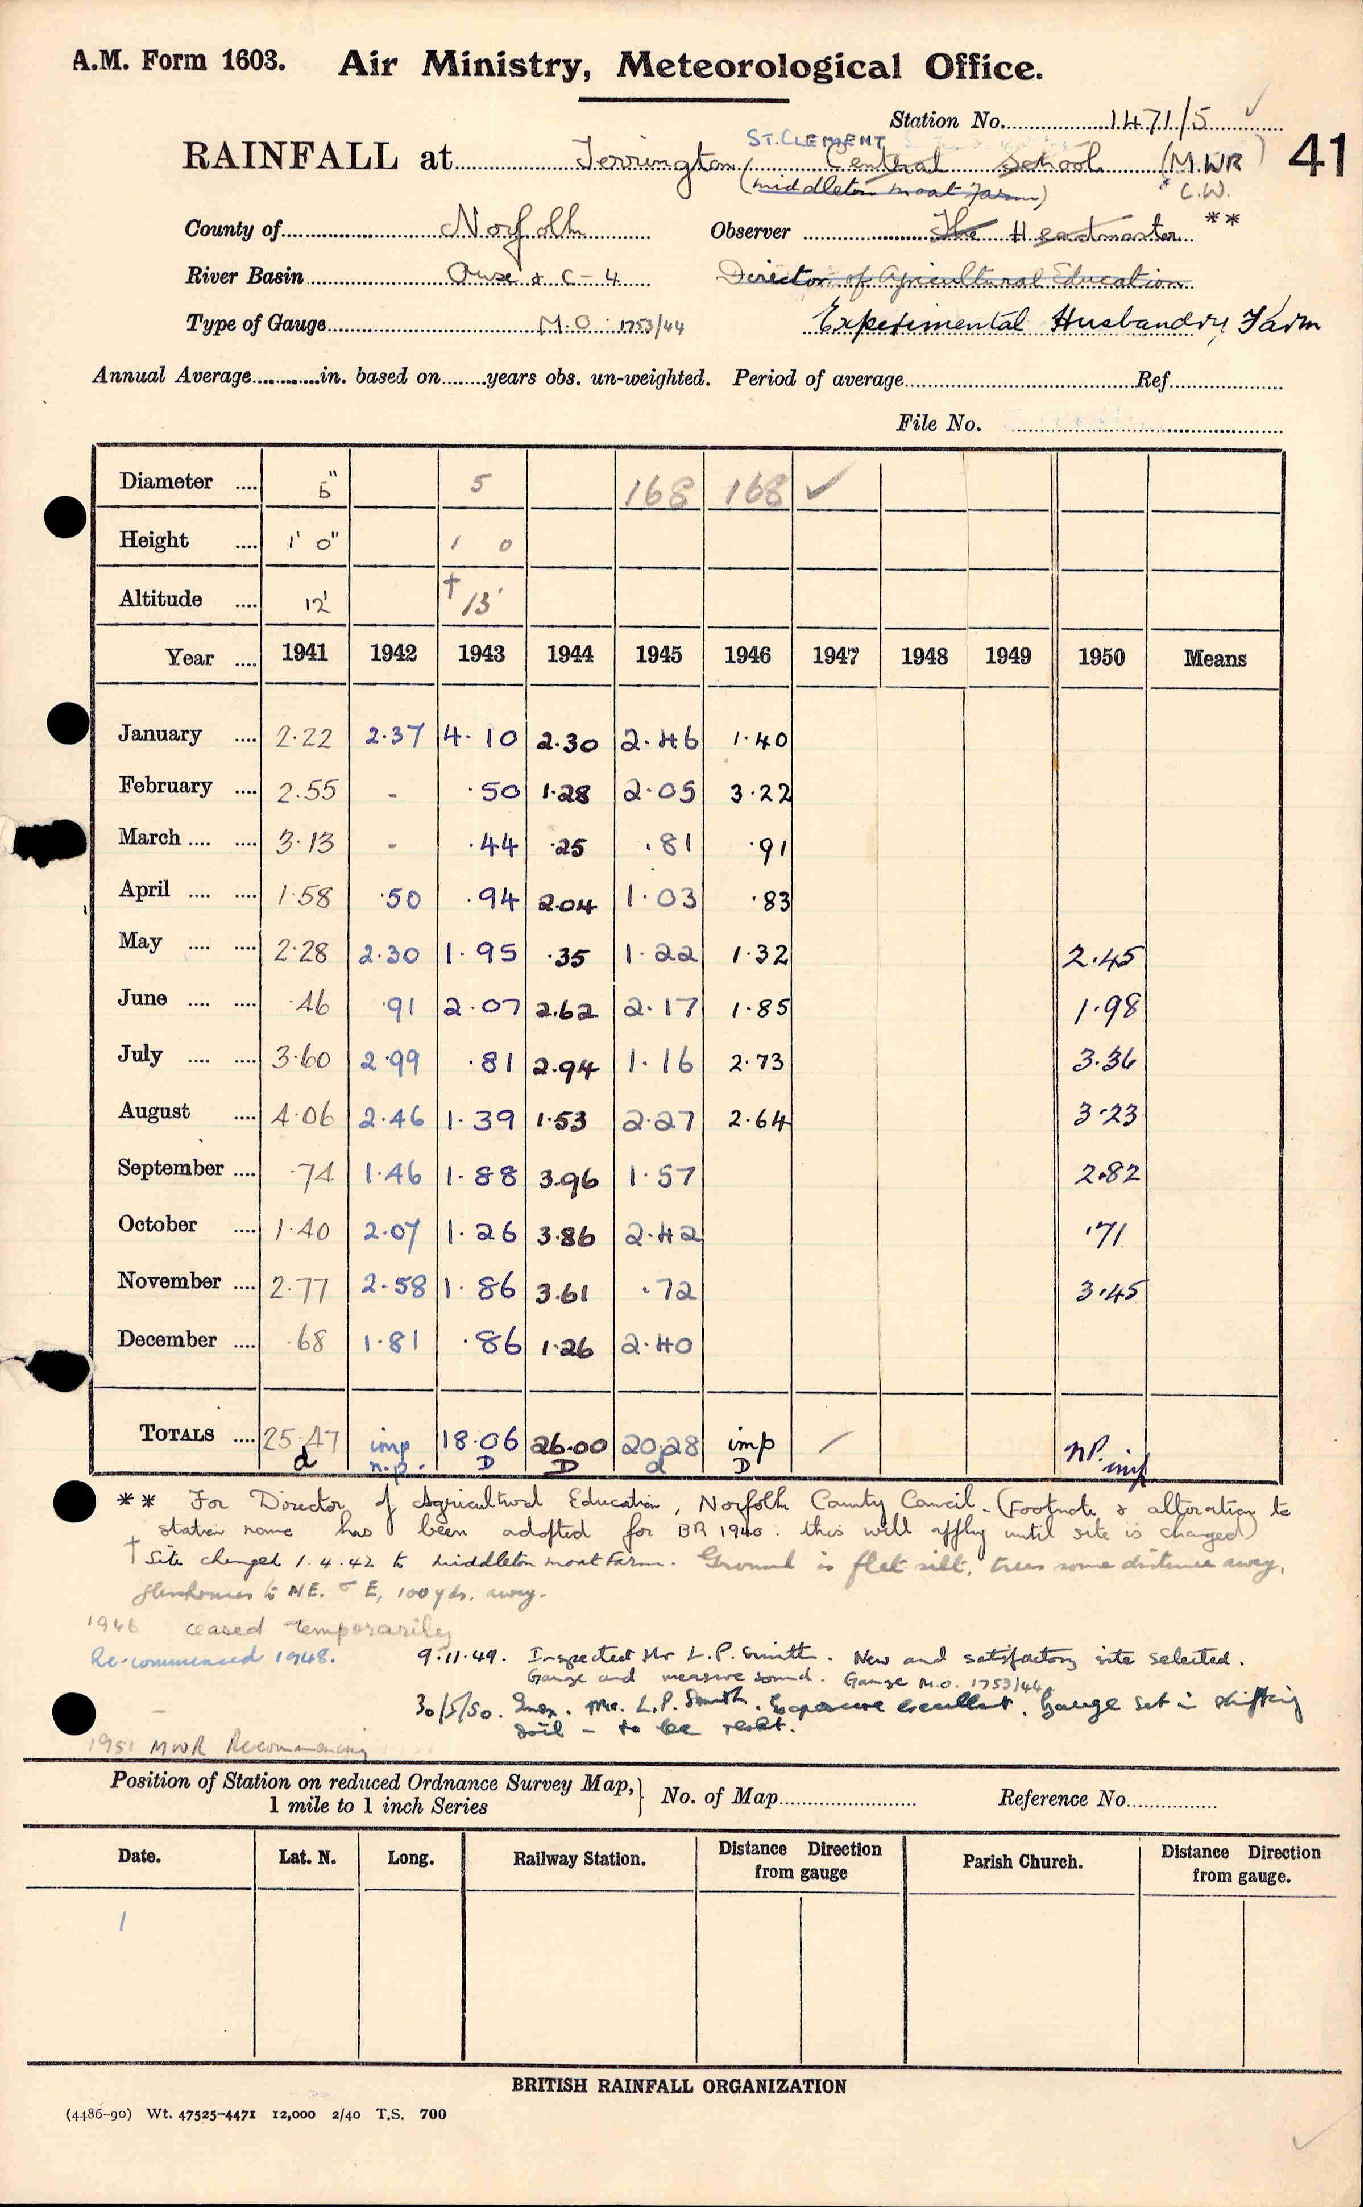 A.M. Form 1603. Air Ministry, Meteorological Office.
Station No. 1471/5 ✓
RAINFALL at Terrington ST. CLEMENT Central School (M.WR) 41
(Middleton Moat Farm) * C.W.
County of Norfolk Observer The Headmaster **
River Basin Ouse & C-4 Director of Agricultural Education
Type of Gauge M.O. 1753/44 Experimental Husbandry Farm
Annual Average in. based on years obs. un-weighted. Period of average Ref
File No.
Diameter .... 5" 5 168 168 ✓
Height .... 1' 0" 1 0
Altitude .... 12' † 13'
Year .... 1941 1942 1943 1944 1945 1946 1947 1948 1949 1950 Means
January .... 2.22 2.37 4.10 2.30 2.46 1.40
February .... 2.55 - .50 1.28 2.05 3.22
March .... .... 3.13 - .44 .25 .81 .91
April .... .... 1.58 .50 .94 2.04 1.03 .83
May .... .... 2.28 2.30 1.95 .35 1.22 1.32 2.45
June .... .... .46 .91 2.07 2.62 2.17 1.85 1.98
July .... .... 3.60 2.99 .81 2.94 1.16 2.73 3.36
August .... 4.06 2.46 1.39 1.53 2.27 2.64 3.23
September .... .74 1.46 1.88 3.96 1.57 2.82
October .... 1.40 2.07 1.26 3.86 2.42 .71
November .... 2.77 2.58 1.86 3.61 .72 3.45
December .... .68 1.81 .86 1.26 2.40
TOTALS .... 25.47 imp 18.06 26.00 20.28 imp / n.p.
d n.p. D D d D imp
** For Director of Agricultural Education, Norfolk County Council. (Footnote & alteration to
station name has been adopted for BR 1940. this will apply until site is changed)
† Site changed 1.4.42 to Middleton Moat Farm. Ground is flat silt, trees some distance away,
glasshouses to NE. & E, 100 yds. away.
1946 ceased temporarily
Re-commenced 1948. 9.11.49. Inspected Mr L.P. Smith. New and satisfactory site selected.
Gauge and measure sound. Gauge M.O. 1753/44
30/5/50. Insp. Mr. L.P. Smith. Exposure excellent. Gauge set in shifting
soil - to be reset.
1951 MWR Recommencing
Position of Station on reduced Ordnance Survey Map, } No. of Map Reference No.
1 mile to 1 inch Series
Date. Lat. N. Long. Railway Station. Distance Direction from gauge Parish Church. Distance Direction from gauge.
1
BRITISH RAINFALL ORGANIZATION
(4486-90) Wt. 47525-4471 12,000 2/40 T.S. 700